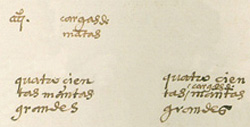 iiij. cargas de
mãtas
quatro çien
tas mantas
grandes
quatro çien
cargas de
tas / mantas
grandes